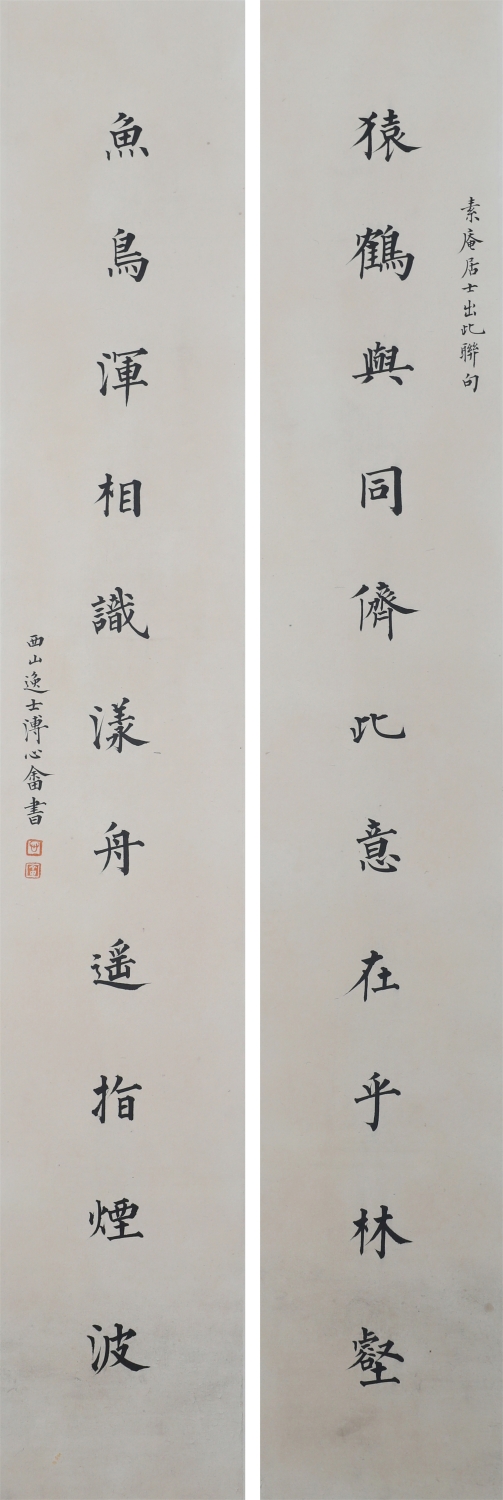 素庵居士出此聯句
猿鶴與同儕比意在乎林壑
魚鳥渾相識漾舟遥指煙波
西山逸士溥心畬書